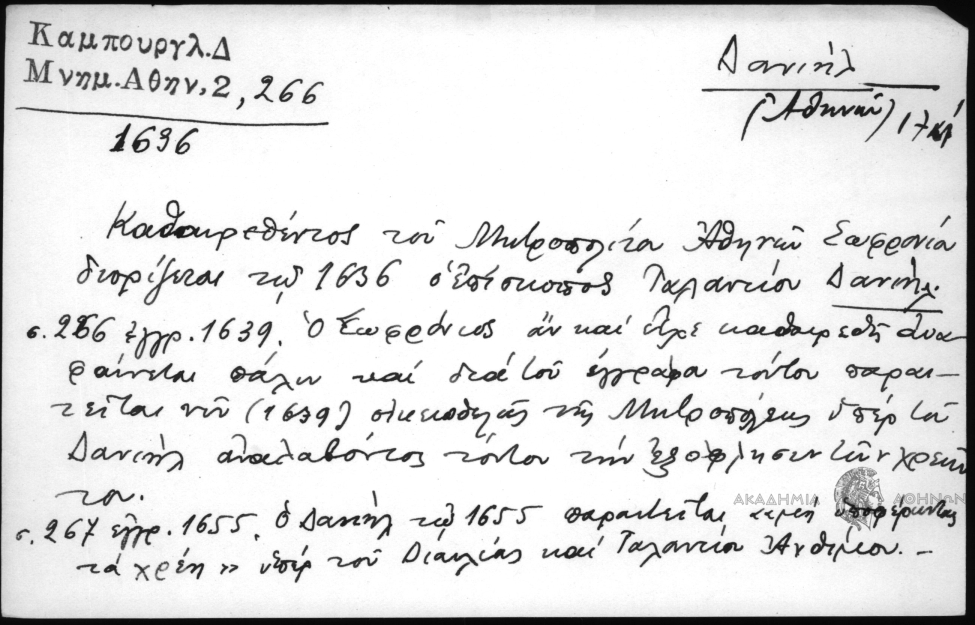 Καμπουργλ.Δ
Μνημ.Αθην.2, 266
1636
Δανιήλ
(Ἀθηνῶν)
Καθαιρεθέντος τοῦ Μητροπολίτου Ἀθηνῶν Σωφρονίου
διορίζεται τῷ 1636 ὁ ἐπίσκοπος Ταλαντίου Δανιήλ.
σ. 266 ἔγγρ. 1639. Ὁ Σωφρόνιος ἂν καὶ εἶχε καθαιρεθῆ ἀνα-
φαίνεται πάλιν καὶ διὰ τοῦ ἐγγράφου τούτου παραι-
τεῖται νῦν (1639) οἰκειοθελῶς τῆς Μητροπόλεως ὑπὲρ τοῦ
Δανιὴλ ἀναλαβόντος τούτου τὴν ἐξόφλησιν τῶν χρεῶν
του.
ΑΚΑΔΗΜΙΑ ΑΘΗΝΩΝ
σ. 267 ἔγγρ. 1655. ὁ Δανιὴλ τῷ 1655 παραιτεῖται «μὴ ὑποφέροντας
τὰ χρέη» ὑπὲρ τοῦ Διαυλίας καὶ Ταλαντίου Ἀνθίμου. –